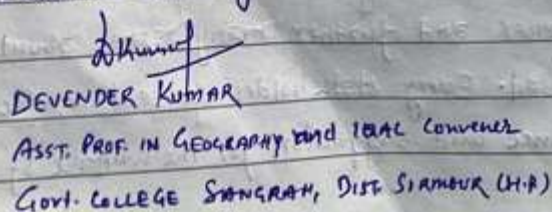 DKumar
DEVENDER KUMAR
ASST. PROF. IN GEOGRAPHY and IQAC Convener
Govt. COLLEGE SANGRAH, DIST SIRMOUR (H.P)